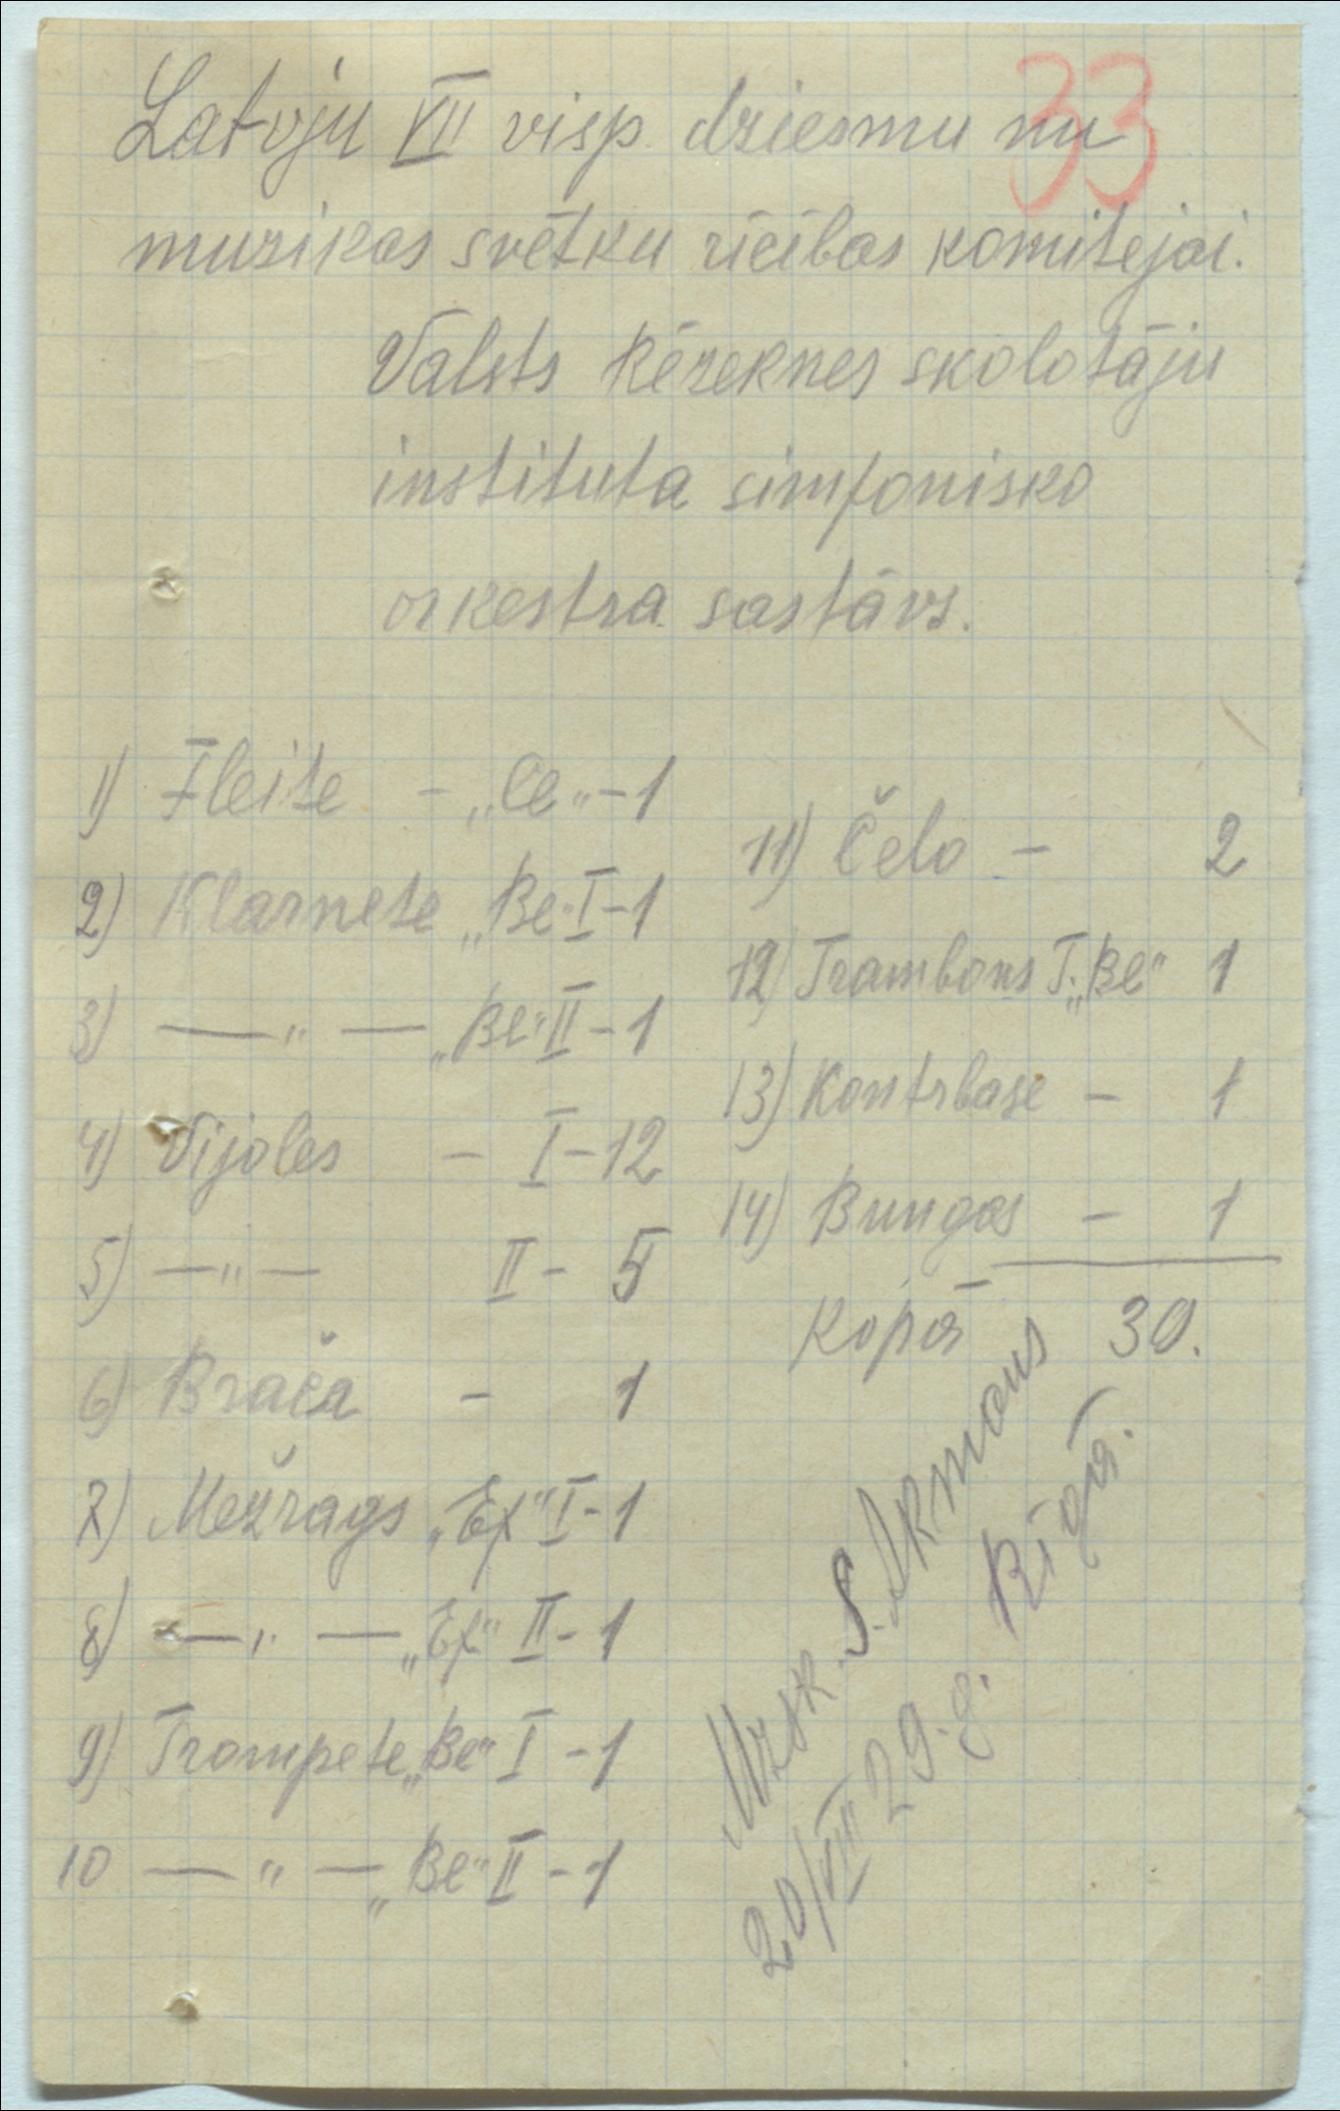 33
Latvju VII visp. dziesmu un
muzikas svētku rīcības komitejai.
Valsts Rēzeknes skolotāju
instituta simfonisko
orkestra sastāvs.
1) Fleite - „Ce“ - 1
2) Klarnete „Be“ I - 1
3) —„— „Be“ II - 1
4) Vijoles - I - 12
5) —„— II - 5
6) Brača - 1
7) Mežrags „Ef“ I - 1
8) —„— „Ef“ II - 1
9) Trompete „Be“ I - 1
10 —„— „Be“ II - 1
11) Čelo - 2
12) Trambons T. „Be“ 1
13) Kontrbase - 1
14) Bungas - 1
Kopā 30.
S. Akmans
20/VIII 29. g. Rīgā.